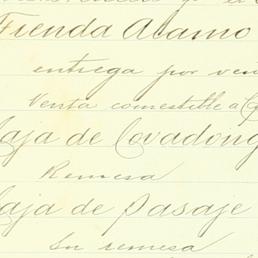 Tienda Alamo
entrega por ven
Venta comestible a
Caja de Covadong
Remesa
Caja de Pasaje
Su remesa